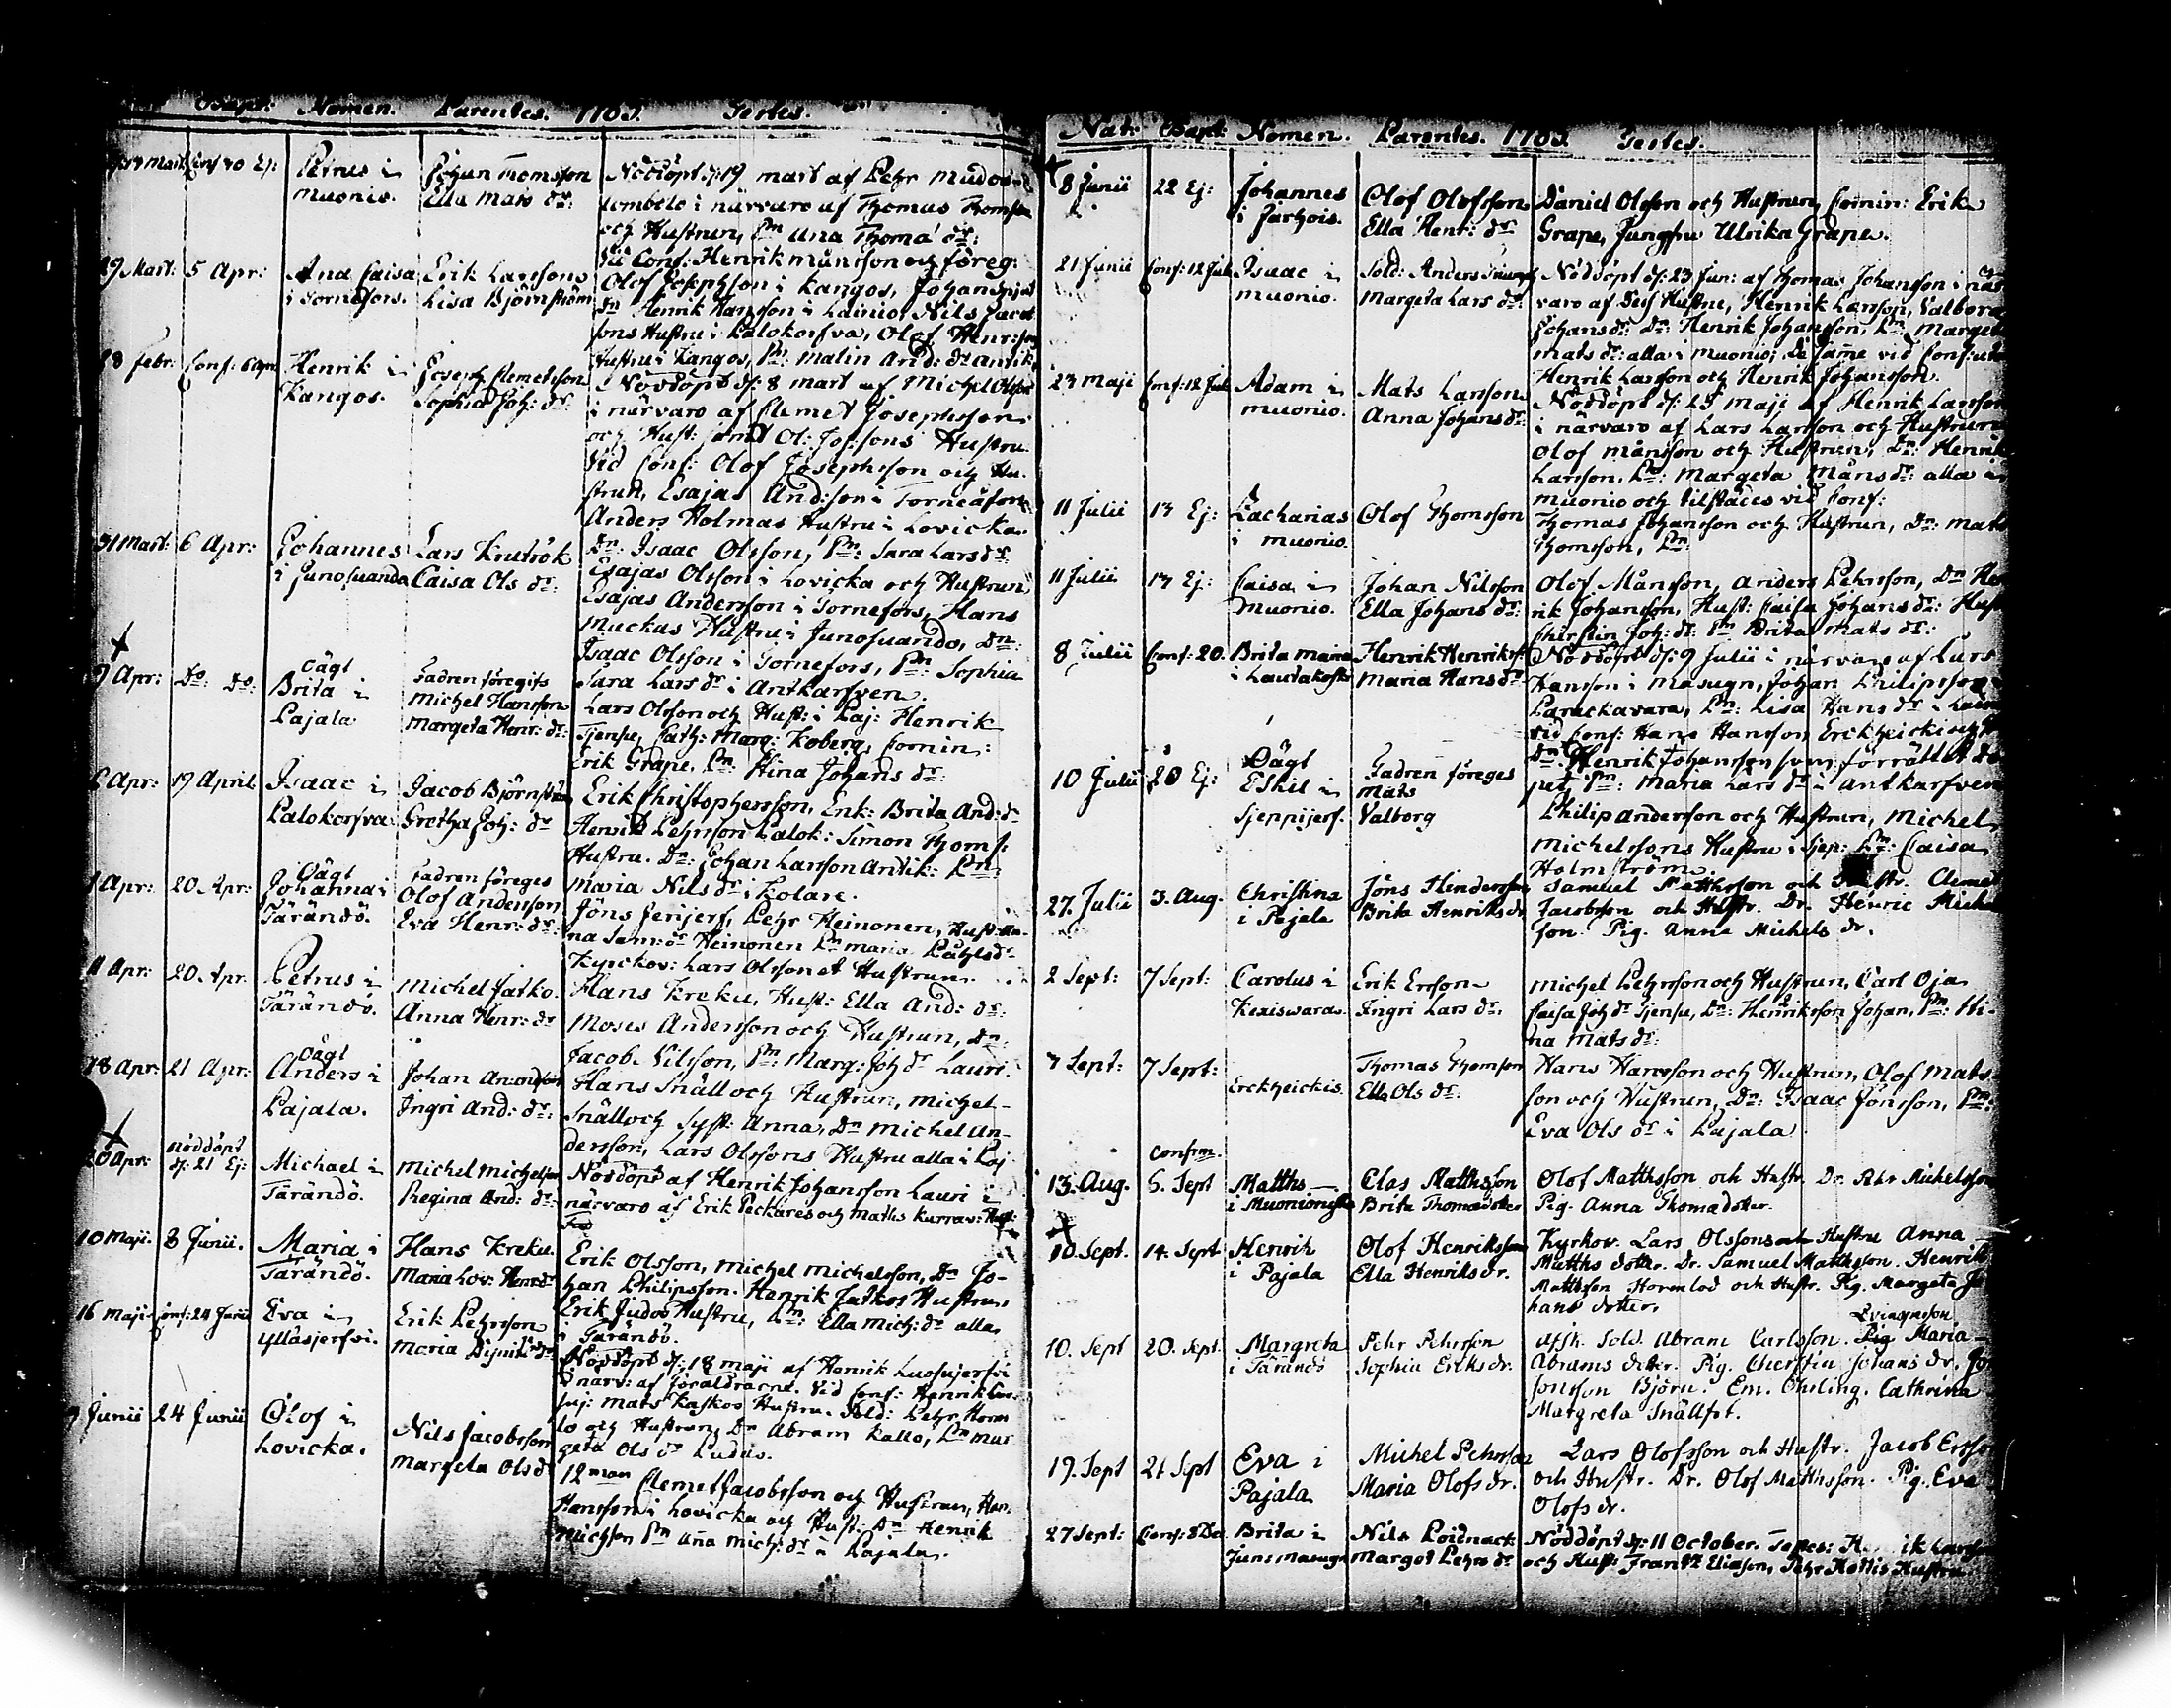 Bapt: Nomen. Parentes. 1783. Testes.
Mart: Conf 30 Ej: Petrus i Johan Thomsson Nöddöpt d: 19 mart af Pehr Mudos-
muonio. Ella Mats dr: lombolo i närvaro af Thomas Thomsson
och Hustrun, Pn Ana Thoma dr:
Vid Conf: Henrik Månsson och föreg:
29 Mart: 5 Apr: Ana Caisa Erik Larsson Olof Josephsson i Kangos, Johan
i Tornefors. Lisa Björnström Dn Henrik Hansson i Lainio, Nils Jacob
sons Hustru i Palokorfva, Olof Henr:
Hustru i Kangos, Pn: Malin And: dr Antik:
28 Febr: Conf: 6 Apr Henrik i Joseph Clemetsson Nöddöpt d: 8 mart af Michel Olsson
Kangos. Sophia Joh: dr: i närvaro af Clemet Josephsson
och Hust: samt Ol: Jos:sons Hustru
Vid Conf: Olof Josephsson och Hu-
strun, Esajas And:son i Torneåfors
Anders Holmas Hustru i Lovicka
31 Mart: 6 Apr: Johannes Lars Krutrök Dn: Isaac Olsson, Pn: Sara Lars dr
i Junosuanda Caisa Ols dr: Esajas Olsson i Lovicka och Hustrun
Esajas Andersson i Tornefors, Hans
Muckas Hustru i Junosuando, Dn:
Isaac Olsson i Tornefors, Pn: Sophia
Sara Lars dr i Antkarfven.
7 Apr: Do: Do: Oägt Brita i Fadren föregifs Lars Olsson och Hust: i Paj: Henrik
Pajala Michel Hansson Tjensu, Cath: Marg: Koberg, Comin:
Margeta Henr: dr: Erik Grape. Pn: Hina Johans dr:
6 Apr: 19 April Isaac i Jacob Björnström Erik Christophersson, Enk: Brita And: dr
Palokorfva Gretha Joh: dr Henrik Pehrsson Palok: Simon Thoms:
Hustru. Dn: Johan Larsson Antik: Pn:
Maria Nils dr i Kolare.
1 Apr: 20 Apr: Oägt Johanna i Fadren föreges Jöns Jerijerf, Pehr Heinonen, Hust: An-
Tärändö. Olof Andersson na Sam: dr Heinonen Pn Maria
Eva Henr: dr: Kyrckov: Lars Olsson et Hustrun.
11 Apr: 20 Apr. Petrus i Michel Jatko. Hans Kreku, Hust: Ella And: dr:
Tärändö. Anna Henr: dr Moses Andersson och Hustrun, Dn:
Jacob Nilsson, Pn: Marg: Joh dr Lauri.
18 Apr: 21 Apr: Oägt Anders i Johan Hans Snäll och Hustrun, Michel
Pajala. Ingri And: dr: Snäll och Syst: Anna, Dn Michel An-
dersson, Lars Olssons Hustru alla i Paj
20 Apr: Nöddöpt d: 21 Ej: Michael i Michel Michelsson Nöddöpt af Henrik Johansson Lauri i
Tärändö. Regina And: dr: närvaro af Erik Peckares och Maths Kurrav: Hust:
10 Maji. 8 Junii. Maria i Hans Kreku. Erik Olsson, Michel Michelsson, Dn Jo-
Tärändö. Maria Lov: Henr dr han Philipsson. Henrik Jatkos Hustru
Erik Judos Hustru, Pn: Ella Mich: dr alla
i Tärändö.
16 Maji Conf: 24 Junii Eva i Erik Pehrsson Nöddöpt d: 18 Maji af Henrik Luosujerfvi
Ylläsjerfvi. Maria i närv: af föräldrarne. Vid Conf: Henrik Luo-
suj: Mats Kaskos Hustru. Sold: Pehr Horm
lo och Hustrun, Dn Abram Kallo, Pn Mar
geta Ols dr Ludus.
Junii 24 Junii Olof i Nils Jacobsson 12man Clemet Jacobsson och Hustrun, Han
Lovicka. Margeta Ols dr Hansson i Lovicka och Hust: Dn Henrik
Michsson Pn Ana Mich: dr i Pajala.
Nat: Bapt: Nomen. Parentes. 1783. Testes.
8 Junii 22 Ej: Johannes Olof Olofsson Daniel Olsson och Hustrun, Comin: Erik
i Jarhois. Ella Henr: dr Grape, Jungfru Ulrika Grape.
21 Junii Conf: 12 Jul Isaac i Sold: Anders Nöddöpt d: 23 Jun: af Thomas Johansson i när
muonio. Margeta Lars dr: varo af dess Hustru, Henrik Larsson, Valborg
Johans dr: Dn: Henrik Johansson, Pn: Margeta
Mats dr: alla i Muonio; De same vid Conf: utom
Henrik Larsson och Henrik Johansson.
23 Maji Conf: 12 Jul Adam i Mats Larsson Nöddöpt d: 25 Maji af Henrik Larsson
muonio. Anna Johans dr: i närvaro af Lars Larsson och Hustrun
Olof Månsson och Hustrun, Dn: Henrik
Larsson, Pn: Margeta Måns dr: alla i
Muonio och tilstädes vid Conf:
11 Julii 13 Ej: Zacharias Olof Thomsson Thomas Johansson och Hustrun, Dn: Mats
i muonio. Thomsson, Pn
11 Julii 13 Ej: Caisa i Johan Nilsson Olof Månsson, Anders Pehrsson, Dn Hen
Muonio. Ella Johans dr: rik Johansson, Hust: Caisa Johans dr: Hust
Chirstin Joh: dr: Pn Brita Mats dr:
8 Julii Conf: 20. Brita Maria Henrik Henriks Nöddöpt d: 9 Julii i närvaro af Lars
i Lautakoski Maria Hans dr Hansson i Masugn, Johan Philipsson
Parackavara, Pn: Lisa Hans dr i
vid Conf: Hans Hansson Erckheicki och
Dn: Henrik Johansson som förrättat do
pet, Pn: Maria Lars dr i Antkarfven
10 Julii 20 Ej: Oägt Eskil i Fadren föreges Mats Philip Andersson och Hustrun, Michel
Sjeppijerf. Valborg Michelssons Hustru i Sjep: Pn: Caisa
Holmström.
27. Julii 3. Aug. Christina Jöns Hindersson Samuel Matthsson och Hustr. Clemet
i Pajala Brita Henriks dr Jacobsson och Hustr. Dr. Henric Michel
son. Pig. Anna Michels dr.
2 Sept: 7 Sept: Carolus i Erik Ersson Michel Pehrsson och Hustrun, Carl Oja
Kexiswara Ingri Lars dr. Caisa Joh dr Tjensu, Dn: Henriksson Johan, Pn: Hi-
na Mats dr:
7 Sept: 7 Sept: Erckheickis. Thomas Thomson Hans Hansson och Hustrun, Olof Mats
Ella Ols dr: son och Hustrun, Dn: Isaac Jönsson, Pn:
Eva Ols dr i Pajala
Confirm.
13. Aug. 6. Sept Matths Clas Matthsson Olof Matthsson och Hustr. Dr. Pehr Michelsson
i Muonioniska Brita Thomædotter Pig. Anna Thomædotter.
10. Sept. 14. Sept Henrih Olof Henriksson Kyrkov. Lars Olssons och Hustru Anna
i Pajala Ella Henriks dr. Matths dotter. Dr. Samuel Matthsson. Henrik
Matthsson Hormlod och Hustr. Pig. Margeta Jo
hans dotter.
10. Sept 20. Sept. Margreta Pehr Pehrsson Afsk. Sold. Abram Carlsson. Maria
i Tärändö Sophia Eriks dr. Abrams dotter. Pig. Cherstin Johans dr.
Jonsson Björn. Em. Ohrling. Cathrina
Margreta Snällfot.
19. Sept 21 Sept Eva i Michel Pehrsson Lars Olofsson och Hustr. Jacob Ersson
Pajala Maria Olofs dr. och Hustr. Dr. Olof Matthsson. Pig. Eva
Olofs dr.
27 Sept: Brita i Nils Nöddöpt d: 11 October. Testes: Larsson
Jun: Masugn Margot Pehrs dr och Hust: Frantz Eliason, Pehr Hustru